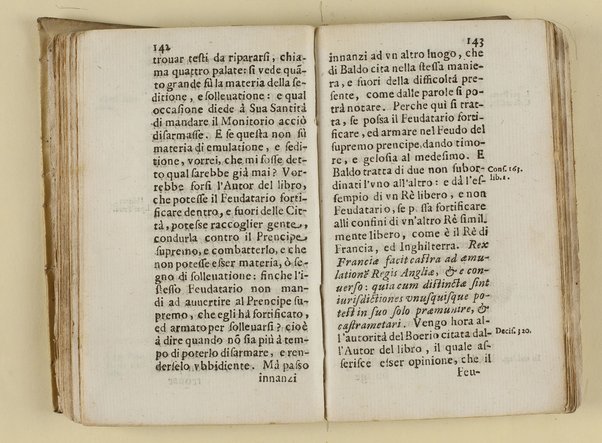 142
trouar testi da ripararsi, chia-
ma quattro palate: si vede quã-
to grande fù la materia della se-
ditione, e solleuatione: e qual
occasione diede à Sua Santità
di mandare il Monitorio acciò
disarmasse. E se questa non fù
materia di emulatione, e sedi-
tione, vorrei, che mi fosse det-
to qual sarebbe già mai? Vor-
rebbe forsi l'Autor del libro,
che potesse il Feudatario forti-
ficare dentro, e fuori delle Cit-
tà, potesse raccoglier gente,
condurla contro il Prencipe
supremo, e combatterlo, e che
non potesse esser materia, ò se-
gno di solleuatione: finche l'i-
stesso Feudatario non man-
di ad auuertire al Prencipe su-
premo, che egli hà fortificato,
ed armato per solleuarsi? cioè
à dire quando nõ sia più à tem-
po di poterlo disarmare, e ren-
derselo vbbidiente. Mà passo
innanzi
143
innanzi ad vn altro luogo, che
di Baldo cita nella stessa manie-
ra, e fuori della difficoltà pre-
sente, come dalle parole si po-
trà notare. Perche qui si trat-
ta, se possa il Feudatario forti-
ficare, ed armare nel Feudo del
supremo prencipe, dando timo-
re, e gelosia al medesimo. E
Baldo tratta di due non subor-
Cons. 163.
lib. 1.
dinati l'vno all'altro: e dà l'es-
sempio di vn Rè libero, e non
Feudatario, se possa fortificare
alli confini di vn'altro Rè simil
mente libero, come è il Rè di
Francia, ed Inghilterra. Rex
Franciæ facit castra ad æmu-
lationẽ Regis Angliæ, & e con-
uerso: quia cum distinctæ sint
iurisdictiones vnusquisque po-
test in suo solo præmunire, &
castrametari. Vengo hora al-
l'autorità del Boerio citata dal-
Decis. 320.
l'Autor del libro, il quale as-
serisce esser opinione, che il
Feu-